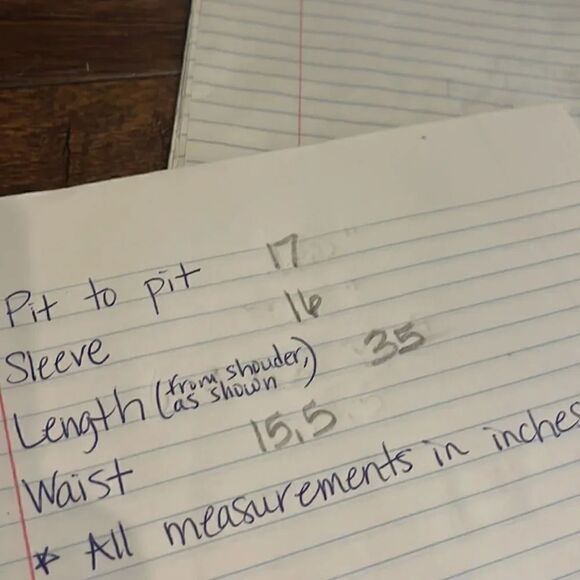 Pit to pit 17
Sleeve 16
Length (from shouder, as shown) 35
Waist 15.5
* All measurements in inches